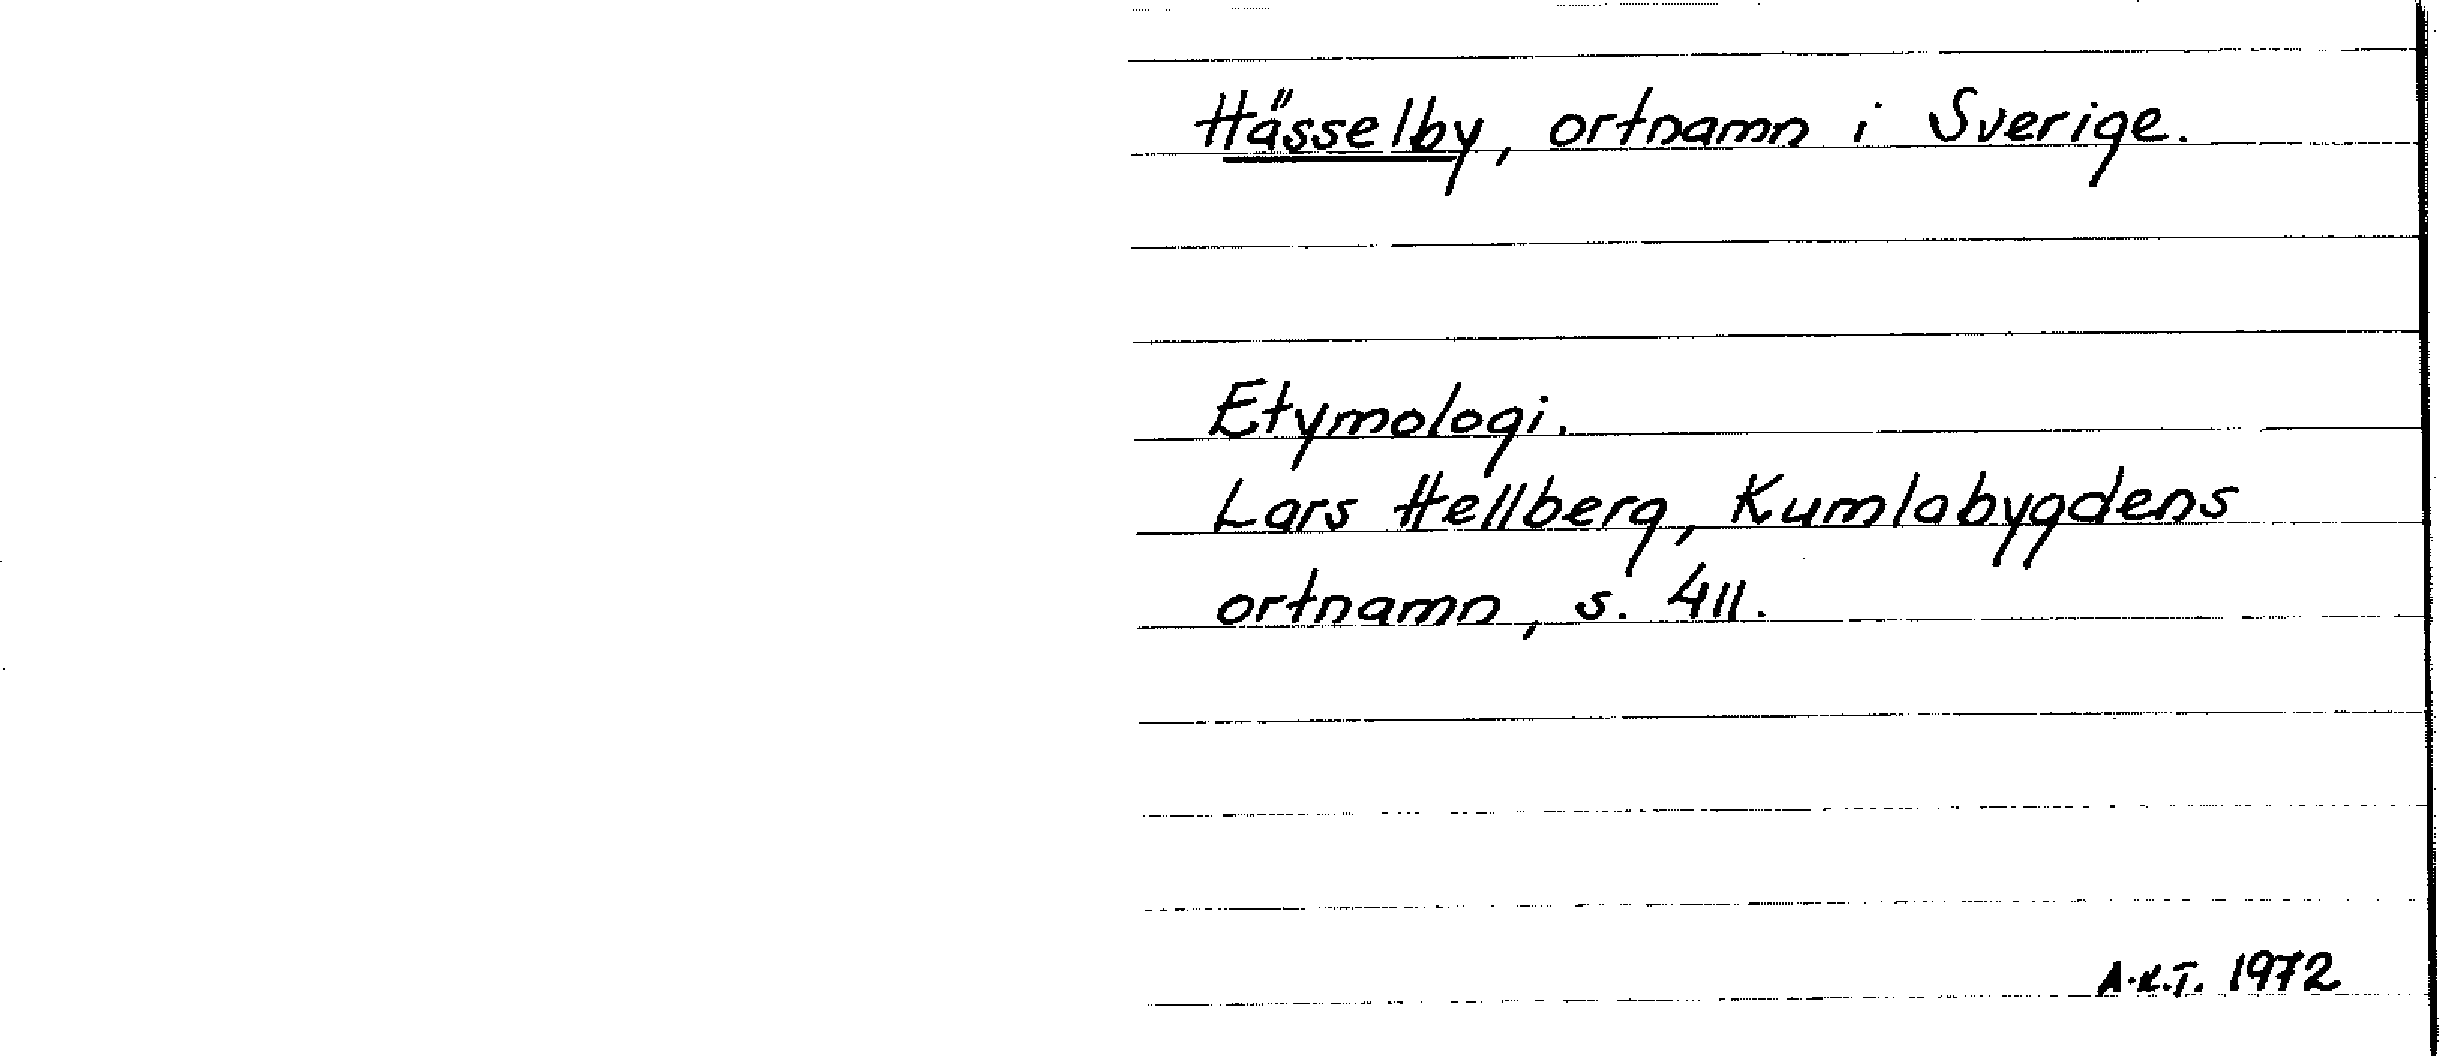 Hässelby, ortnamn i Sverige.
Etymologi.
Lars Hellberg, Kumlabygdens
ortnamn, s. 411.
A.K.T. 1972